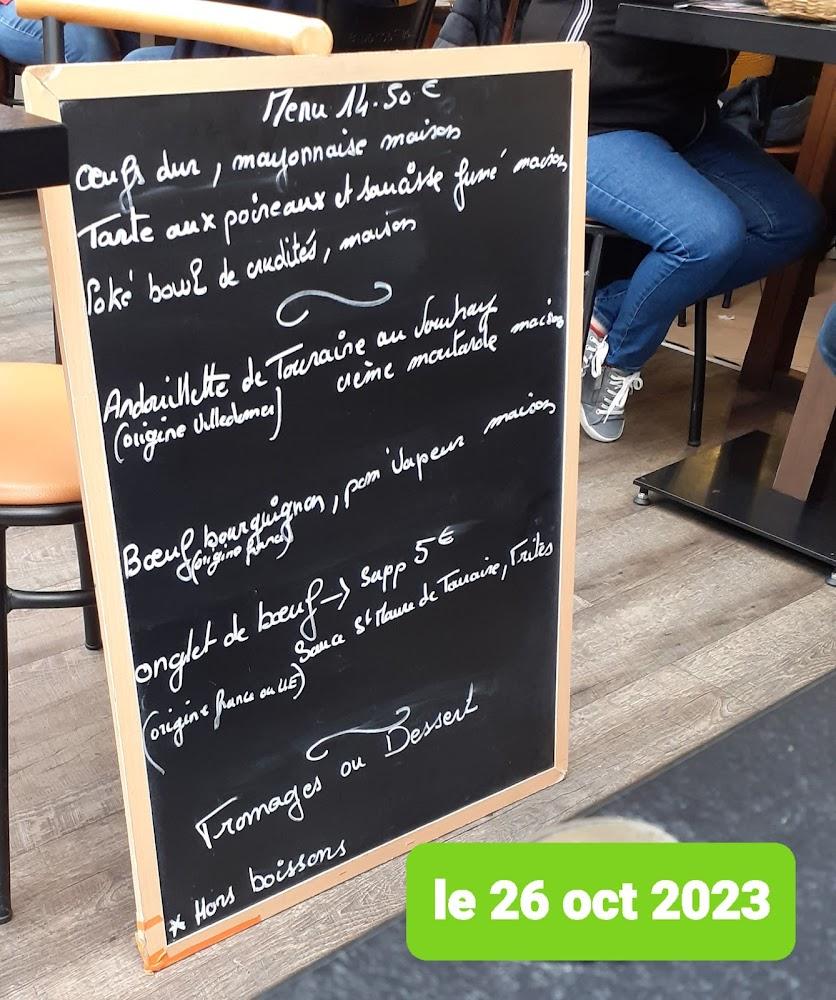 Menu 14.50 €
œufs dur, mayonnaise maison
Tarte aux poireaux et saucisse fumé maison
Poké bowl de crudités, maison
Andouillette de Touraine au Vouvray
crème moutarde maison
(origine Villedomer)
Bœuf bourguignon, pom vapeur maison
(origine france)
onglet de bœuf → Supp 5€
Sauce St Maure de Touraine, Frites
(origine france ou UE)
Fromages ou Dessert
* Hors boissons
le 26 oct 2023